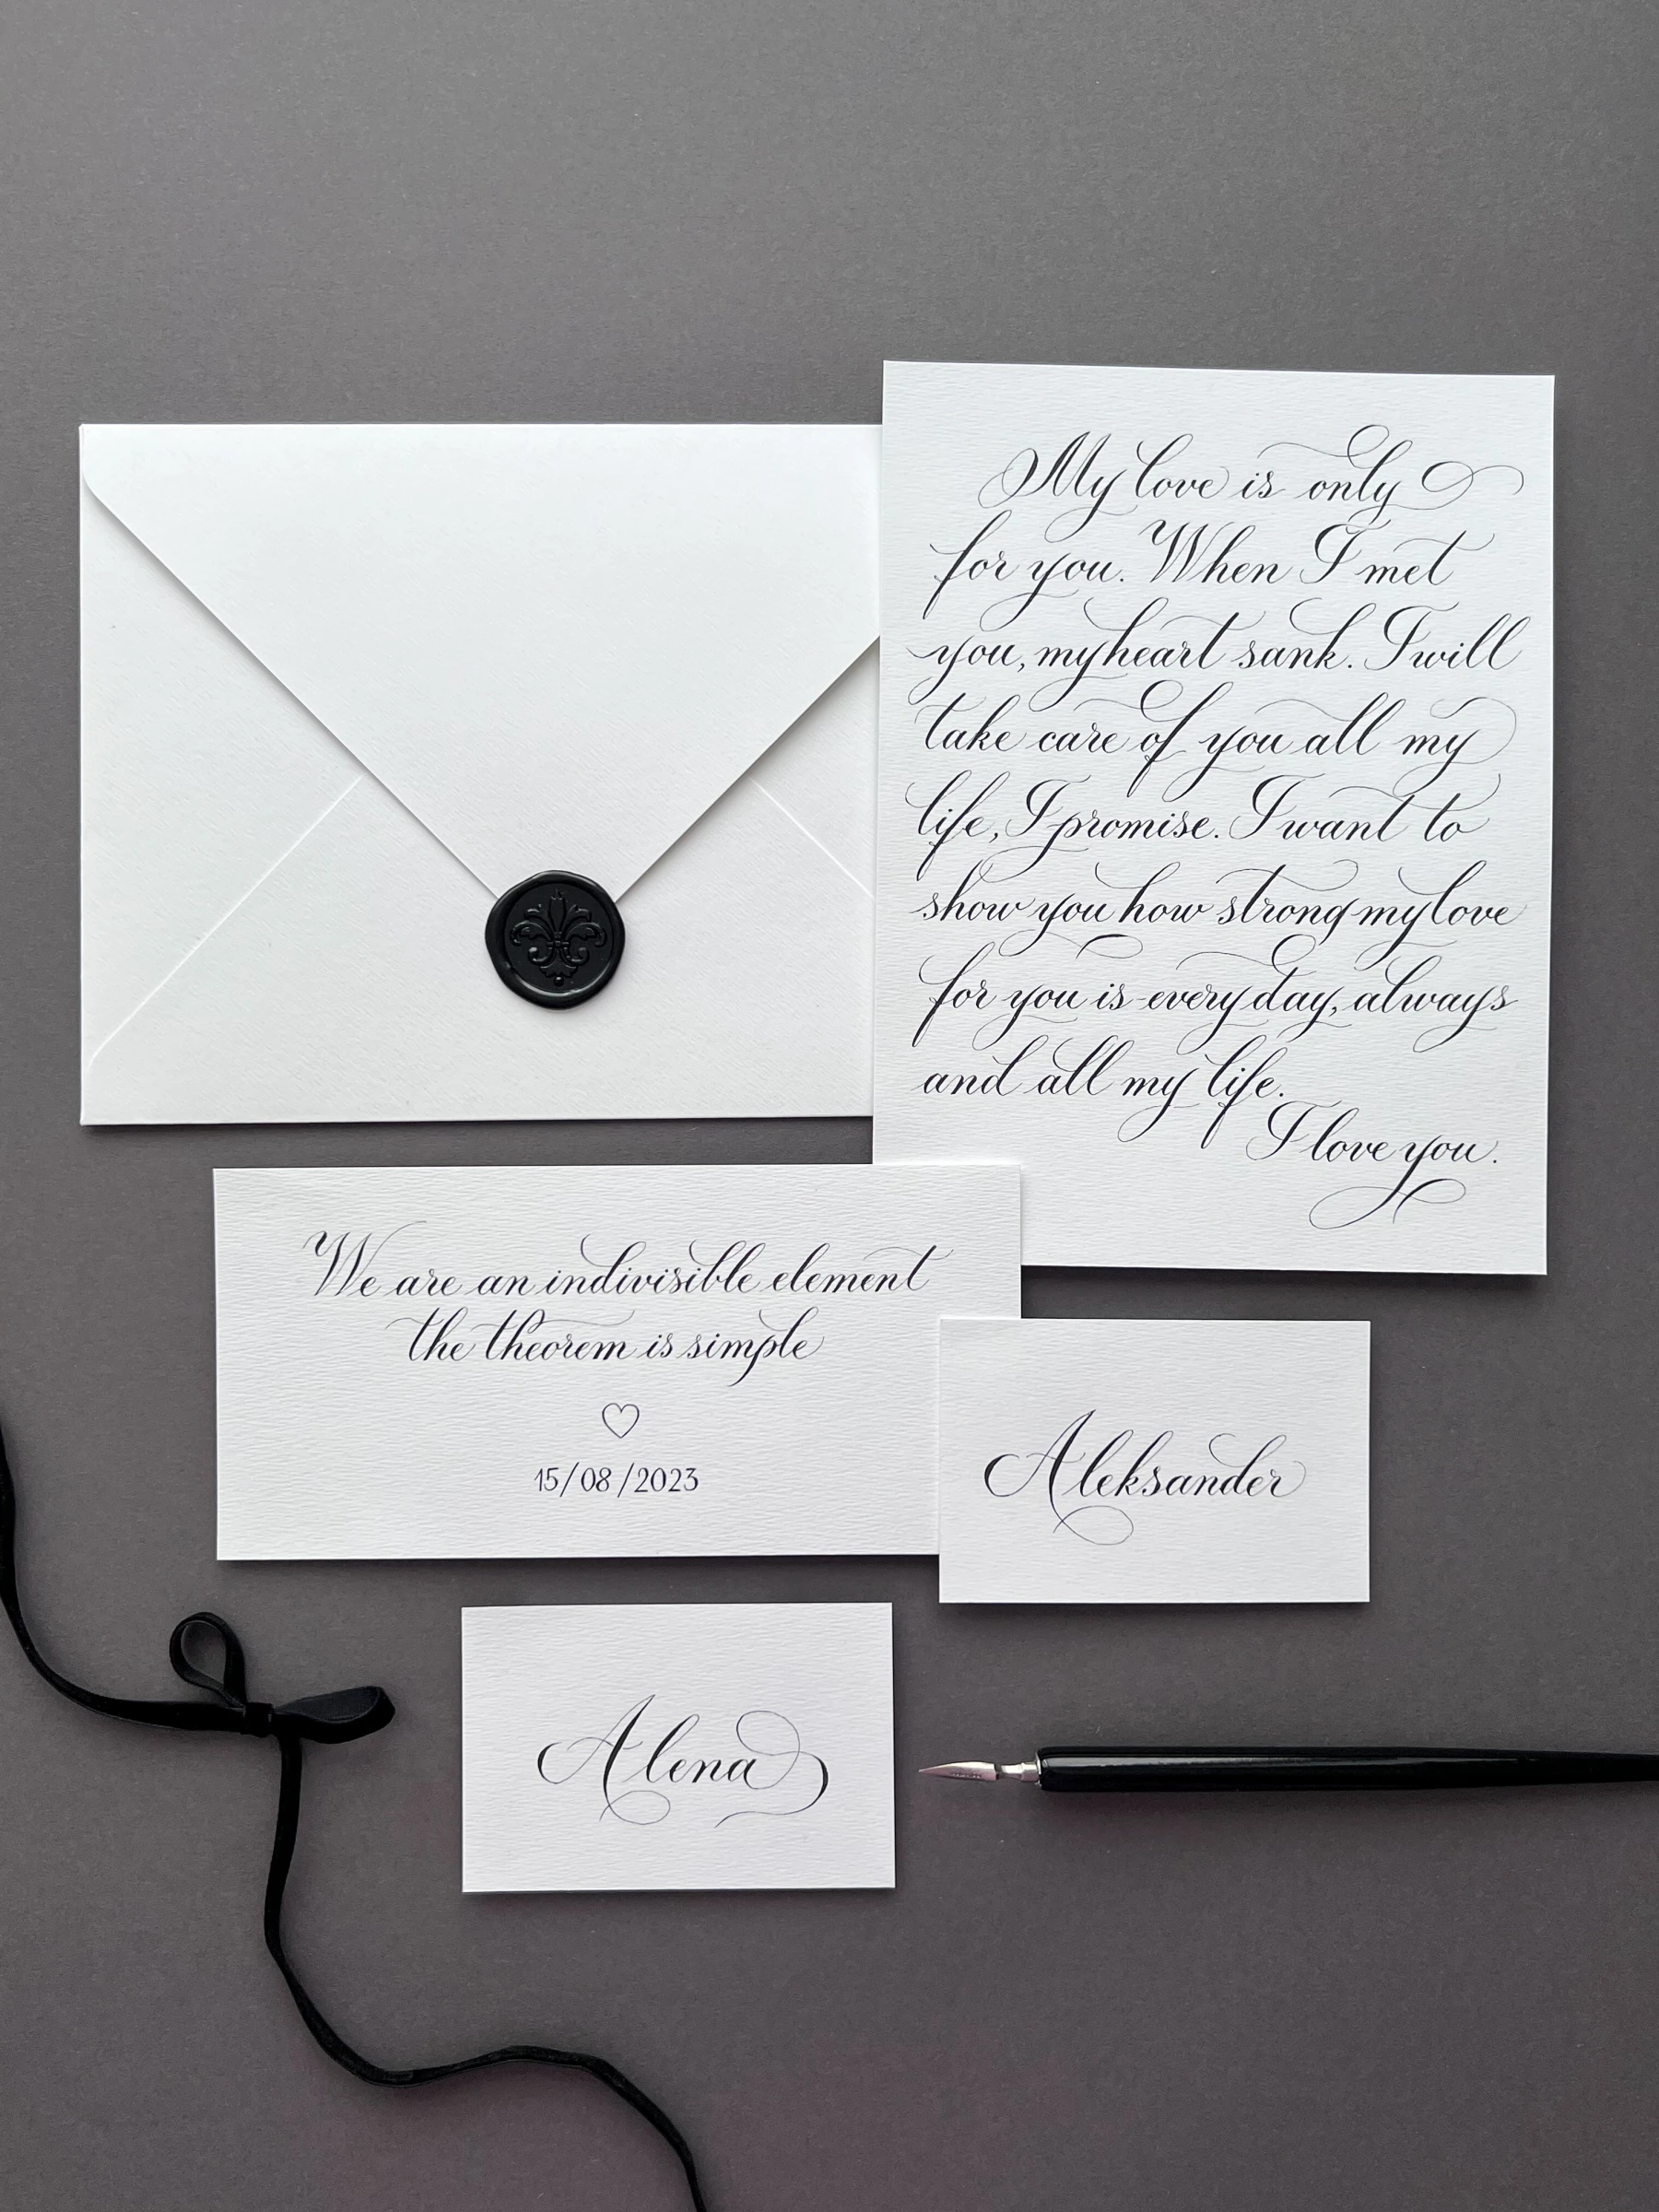 My love is only
for you. When I met
you, my heart sank. I will
take care of you all my
life, I promise. I want to
show you how strong my love
for you is every day, always
and all my life.
I love you.
We are an indivisible element
the theorem is simple
15/08/2023
Aleksander
Alena